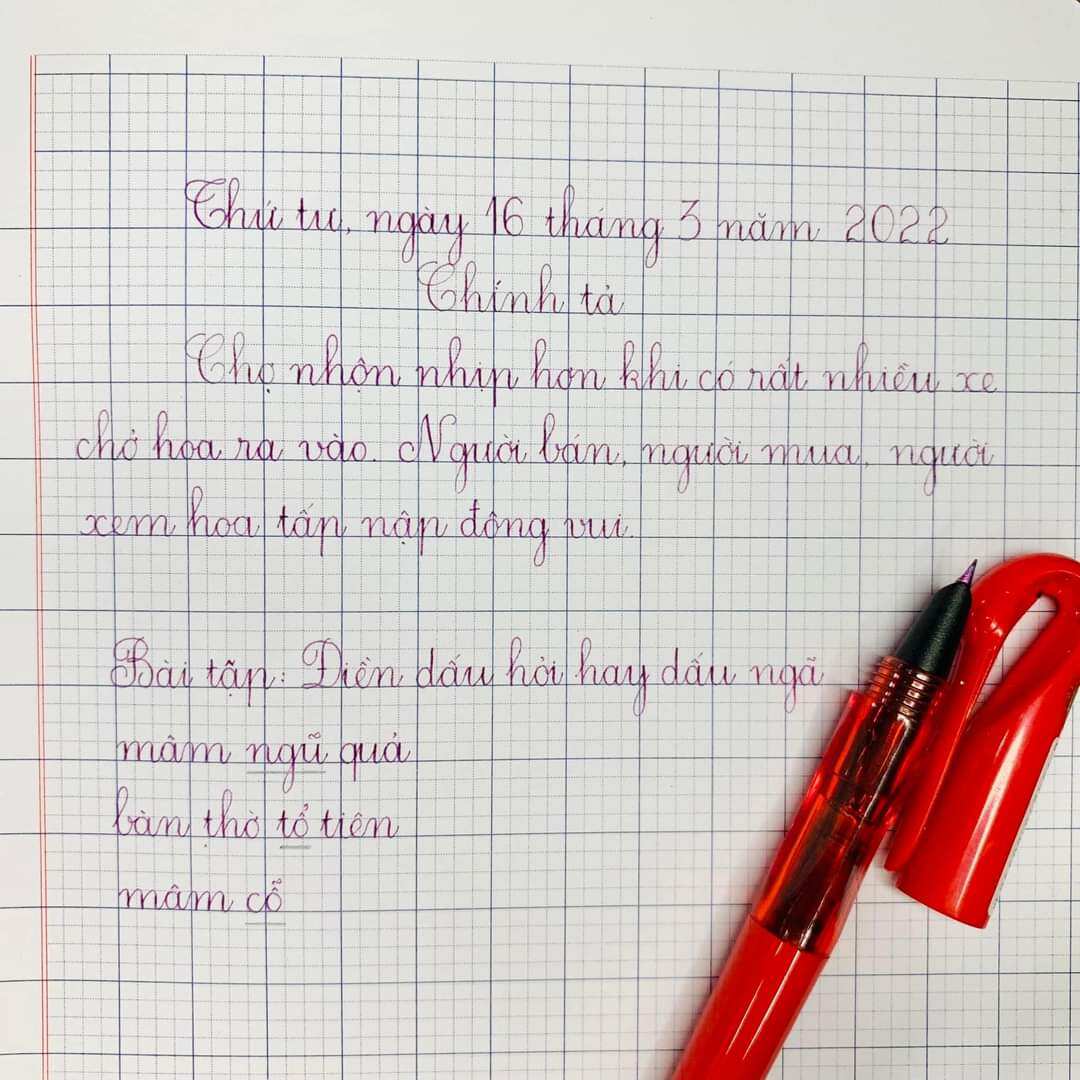 Thứ tư, ngày 16 tháng 3 năm 2022
Chính tả
Chợ nhộn nhịp hơn khi có rất nhiều xe
chở hoa ra vào. Người bán, người mua, người
xem hoa tấp nập đông vui.
Bài tập: Điền dấu hỏi hay dấu ngã
mâm ngũ quả
bàn thờ tổ tiên
mâm cỗ